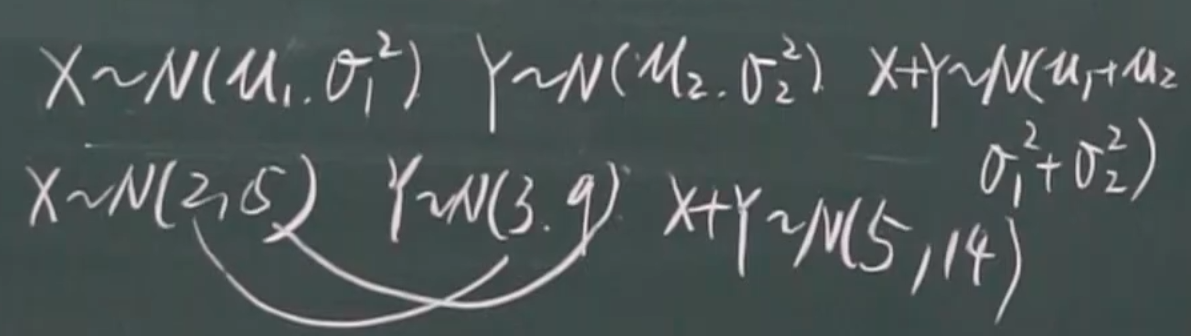 X~N(μ₁.σ₁²) Y~N(μ₂.σ₂²) X+Y~N(μ₁+μ₂
σ₁²+σ₂²)
X~N(2,5) Y~N(3.9) X+Y~N(5,14)